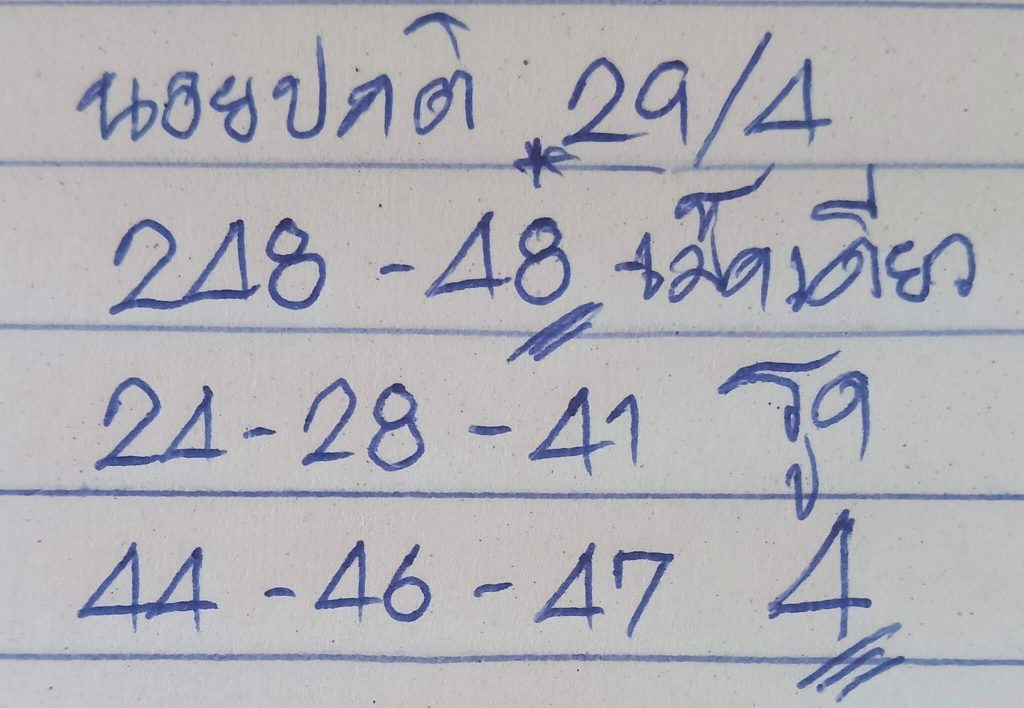 นอยปกติ 29/4
*
248 - 48 เม็ดเดียว
24 - 28 - 41 รูด
44 - 46 - 47 4